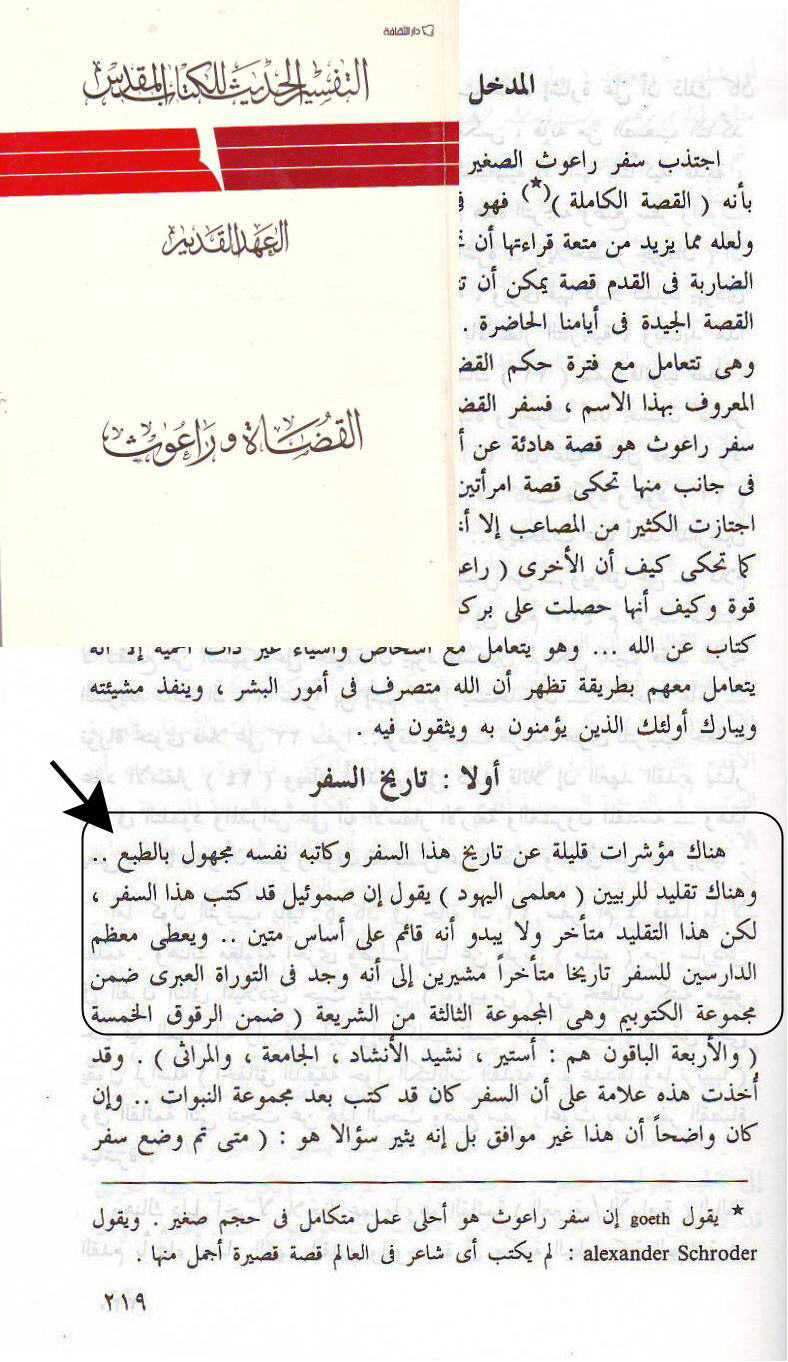 دار الثقافة
التفسير الحديث للكتاب المقدس
العهد القديم
القضاة وراعوث
المدخل
اجتذب سفر راعوث الصغير
بأنه ( القصة الكاملة )(*) فهو
ولعله مما يزيد من متعة قراءتها أن
الضاربة فى القدم قصة يمكن أن
القصة الجيدة فى أيامنا الحاضرة .
وهى تتعامل مع فترة حكم
المعروف بهذا الاسم ، فسفر
سفر راعوث هو قصة هادئة عن
فى جانب منها تحكى قصة امرأتين
اجتازت الكثير من المصاعب إلا
كما تحكى كيف أن الأخرى (
قوة وكيف أنها حصلت على
كتاب عن الله ... وهو يتعامل مع أشخاص وأشياء غير ذات أهمية إلا أنه
يتعامل معهم بطريقة تظهر أن الله متصرف فى أمور البشر ، وينفذ مشيئته
ويبارك أولئك الذين يؤمنون به ويثقون فيه .
أولا : تاريخ السفر
هناك مؤشرات قليلة عن تاريخ هذا السفر وكاتبه نفسه مجهول بالطبع ..
وهناك تقليد للربيين ( معلمى اليهود ) يقول إن صموئيل قد كتب هذا السفر ،
لكن هذا التقليد متأخر ولا يبدو أنه قائم على أساس متين .. ويعطى معظم
الدارسين للسفر تاريخا متأخراً مشيرين إلى أنه وجد فى التوراة العبرى ضمن
مجموعة الكتوبيم وهى المجموعة الثالثة من الشريعة ( ضمن الرقوق الخمسة
( والأربعة الباقون هم : أستير ، نشيد الأنشاد ، الجامعة ، والمراثى ) . وقد
أُخذت هذه علامة على أن السفر كان قد كتب بعد مجموعة النبوات .. وإن
كان واضحاً أن هذا غير موافق بل إنه يثير سؤالا هو : ( متى تم وضع سفر
* يقول goeth إن سفر راعوث هو أحلى عمل متكامل فى حجم صغير . ويقول
alexander Schroder : لم يكتب أى شاعر فى العالم قصة قصيرة أجمل منها .
٢١٩